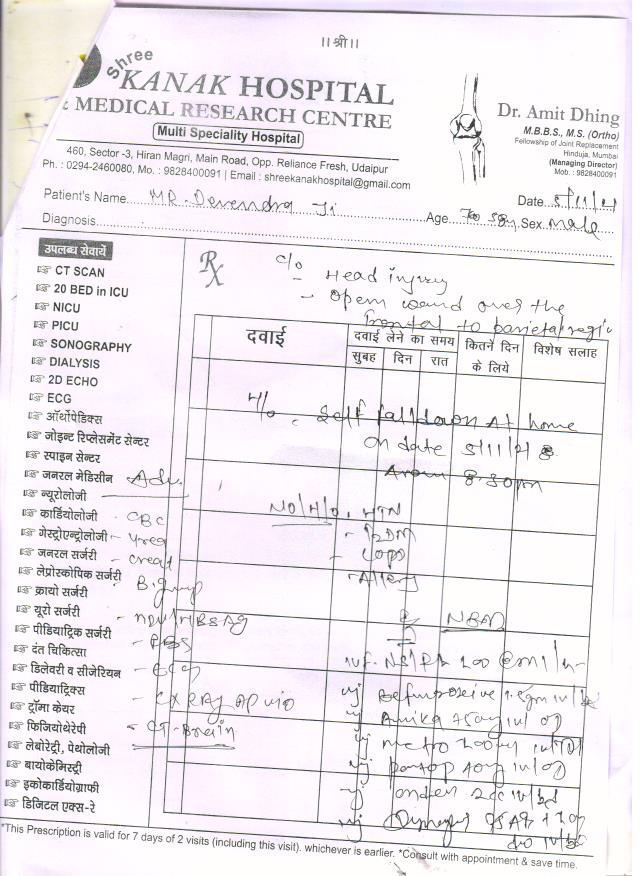 ।। श्री ।।
Shree
KANAK HOSPITAL
& MEDICAL RESEARCH CENTRE
Multi Speciality Hospital
460, Sector -3, Hiran Magri, Main Road, Opp. Reliance Fresh, Udaipur
Ph. : 0294-2460080, Mo. : 9828400091 | Email : shreekanakhospital@gmail.com
Dr. Amit Dhing
M.B.B.S., M.S. (Ortho)
Fellowship of Joint Replacement
Hinduja, Mumbai
(Managing Director)
Mob. : 9828400091
Patient's Name MR. Devendra Ji
Date 5/11/21
Age 70 Sex male
Diagnosis
उपलब्ध सेवायें
CT SCAN
20 BED in ICU
NICU
PICU
SONOGRAPHY
DIALYSIS
2D ECHO
ECG
ऑर्थोपेडिक्स
जोइन्ट रिप्लेसमेंट सेन्टर
स्पाइन सेन्टर
जनरल मेडिसीन
न्यूरोलोजी
कार्डियोलोजी
गेस्ट्रोएन्ट्रोलोजी
जनरल सर्जरी
लेप्रोस्कोपिक सर्जरी
क्रायो सर्जरी
यूरो सर्जरी
पीडियाट्रिक सर्जरी
दंत चिकित्सा
डिलेवरी व सीजेरियन
पीडियाट्रिक्स
ट्रॉमा केयर
फिजियोथेरेपी
लेबोरेट्री, पेथोलोजी
बायोकेमिस्ट्री
इकोकार्डियोग्राफी
डिजिटल एक्स-रे
Adv.
- CBC
- Urea
- creat
- RBS
- ECG
- CXRAY AP
- CT-Brain
Rx
c/o
- Head injury
- open wound over the
frontal to parietal regi
दवाई
दवाई लेने का समय
सुबह दिन रात
कितने दिन
के लिये
विशेष सलाह
H/o. Self fall down At home
on date 5/11/21
Arou 8:30 pm
NO/H/O. HTN
- T2DM
- COPD
- Allergy
NBM
ivf. NS/RL 100 ml/hr
inj 1.5gm iv/bd
inj Amika iv/od
inj metro iv/
inj pantop 40mg iv/od
inj onden 2cc iv/bd
inj
*This Prescription is valid for 7 days of 2 visits (including this visit). whichever is earlier. *Consult with appointment & save time.